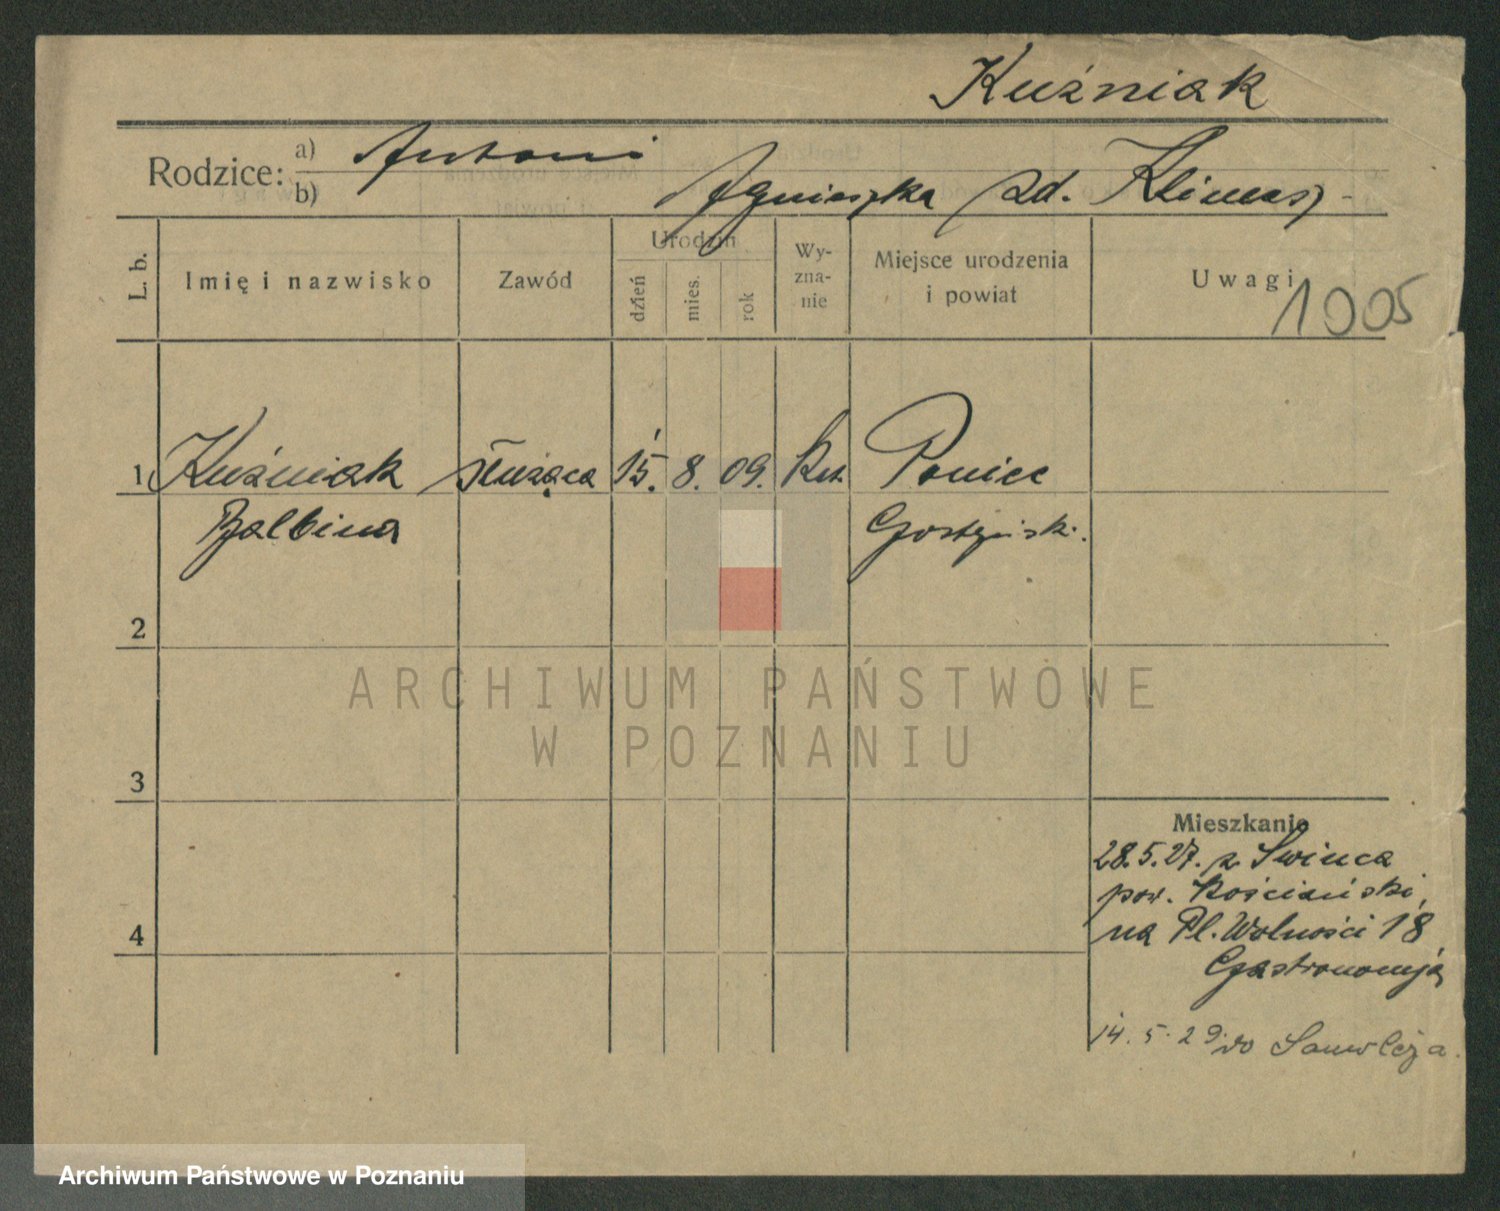 Kuźniak
Rodzice: a) Antoni
b) Agnieszka zd. Klimas
L. b.
Imię i nazwisko
Zawód
Urodzin
dzień
mies.
rok
Wy-
zna-
nie
Miejsce urodzenia
i powiat
Uwagi
1005
1 Kuźniak służąca 15. 8. 09. kat. Poniec
Balbina Gostyński.
2
3
4
Mieszkanie
28.5.27. z
pow. Kościański,
na Pl. Wolności 18
Gastronomja
14. 5. 29 do
ARCHIWUM PAŃSTWOWE
W POZNANIU
Archiwum Państwowe w Poznaniu